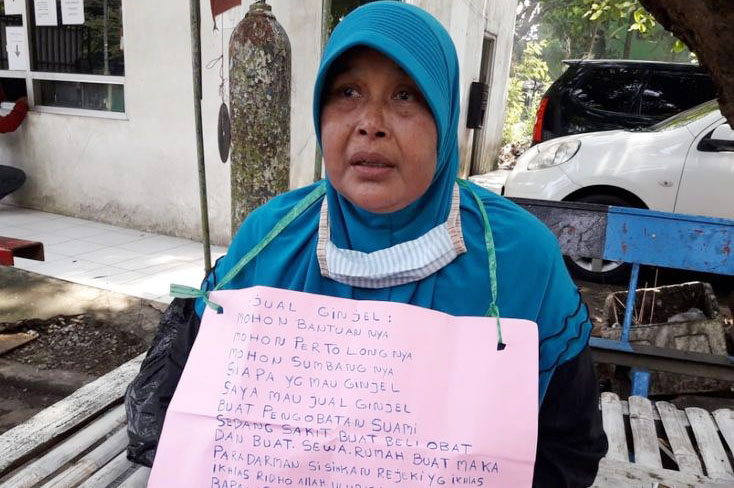 JUAL GINJEL :
MOHON BANTUAN NYA
MOHON PERTOLONG NYA
MOHON SUMBANG NYA
SIAPA YG MAU GINJEL
SAYA MAU JUAL GINJEL
BUAT PENGOBATAN SUAMI
SEDANG SAKIT BUAT BELI OBAT
DAN BUAT. SEWA. RUMAH BUAT MAKA
PARA DARMAN SISIHKAN REJEKI YG IKHLAS
IKHLAS RIDHO ALLAH